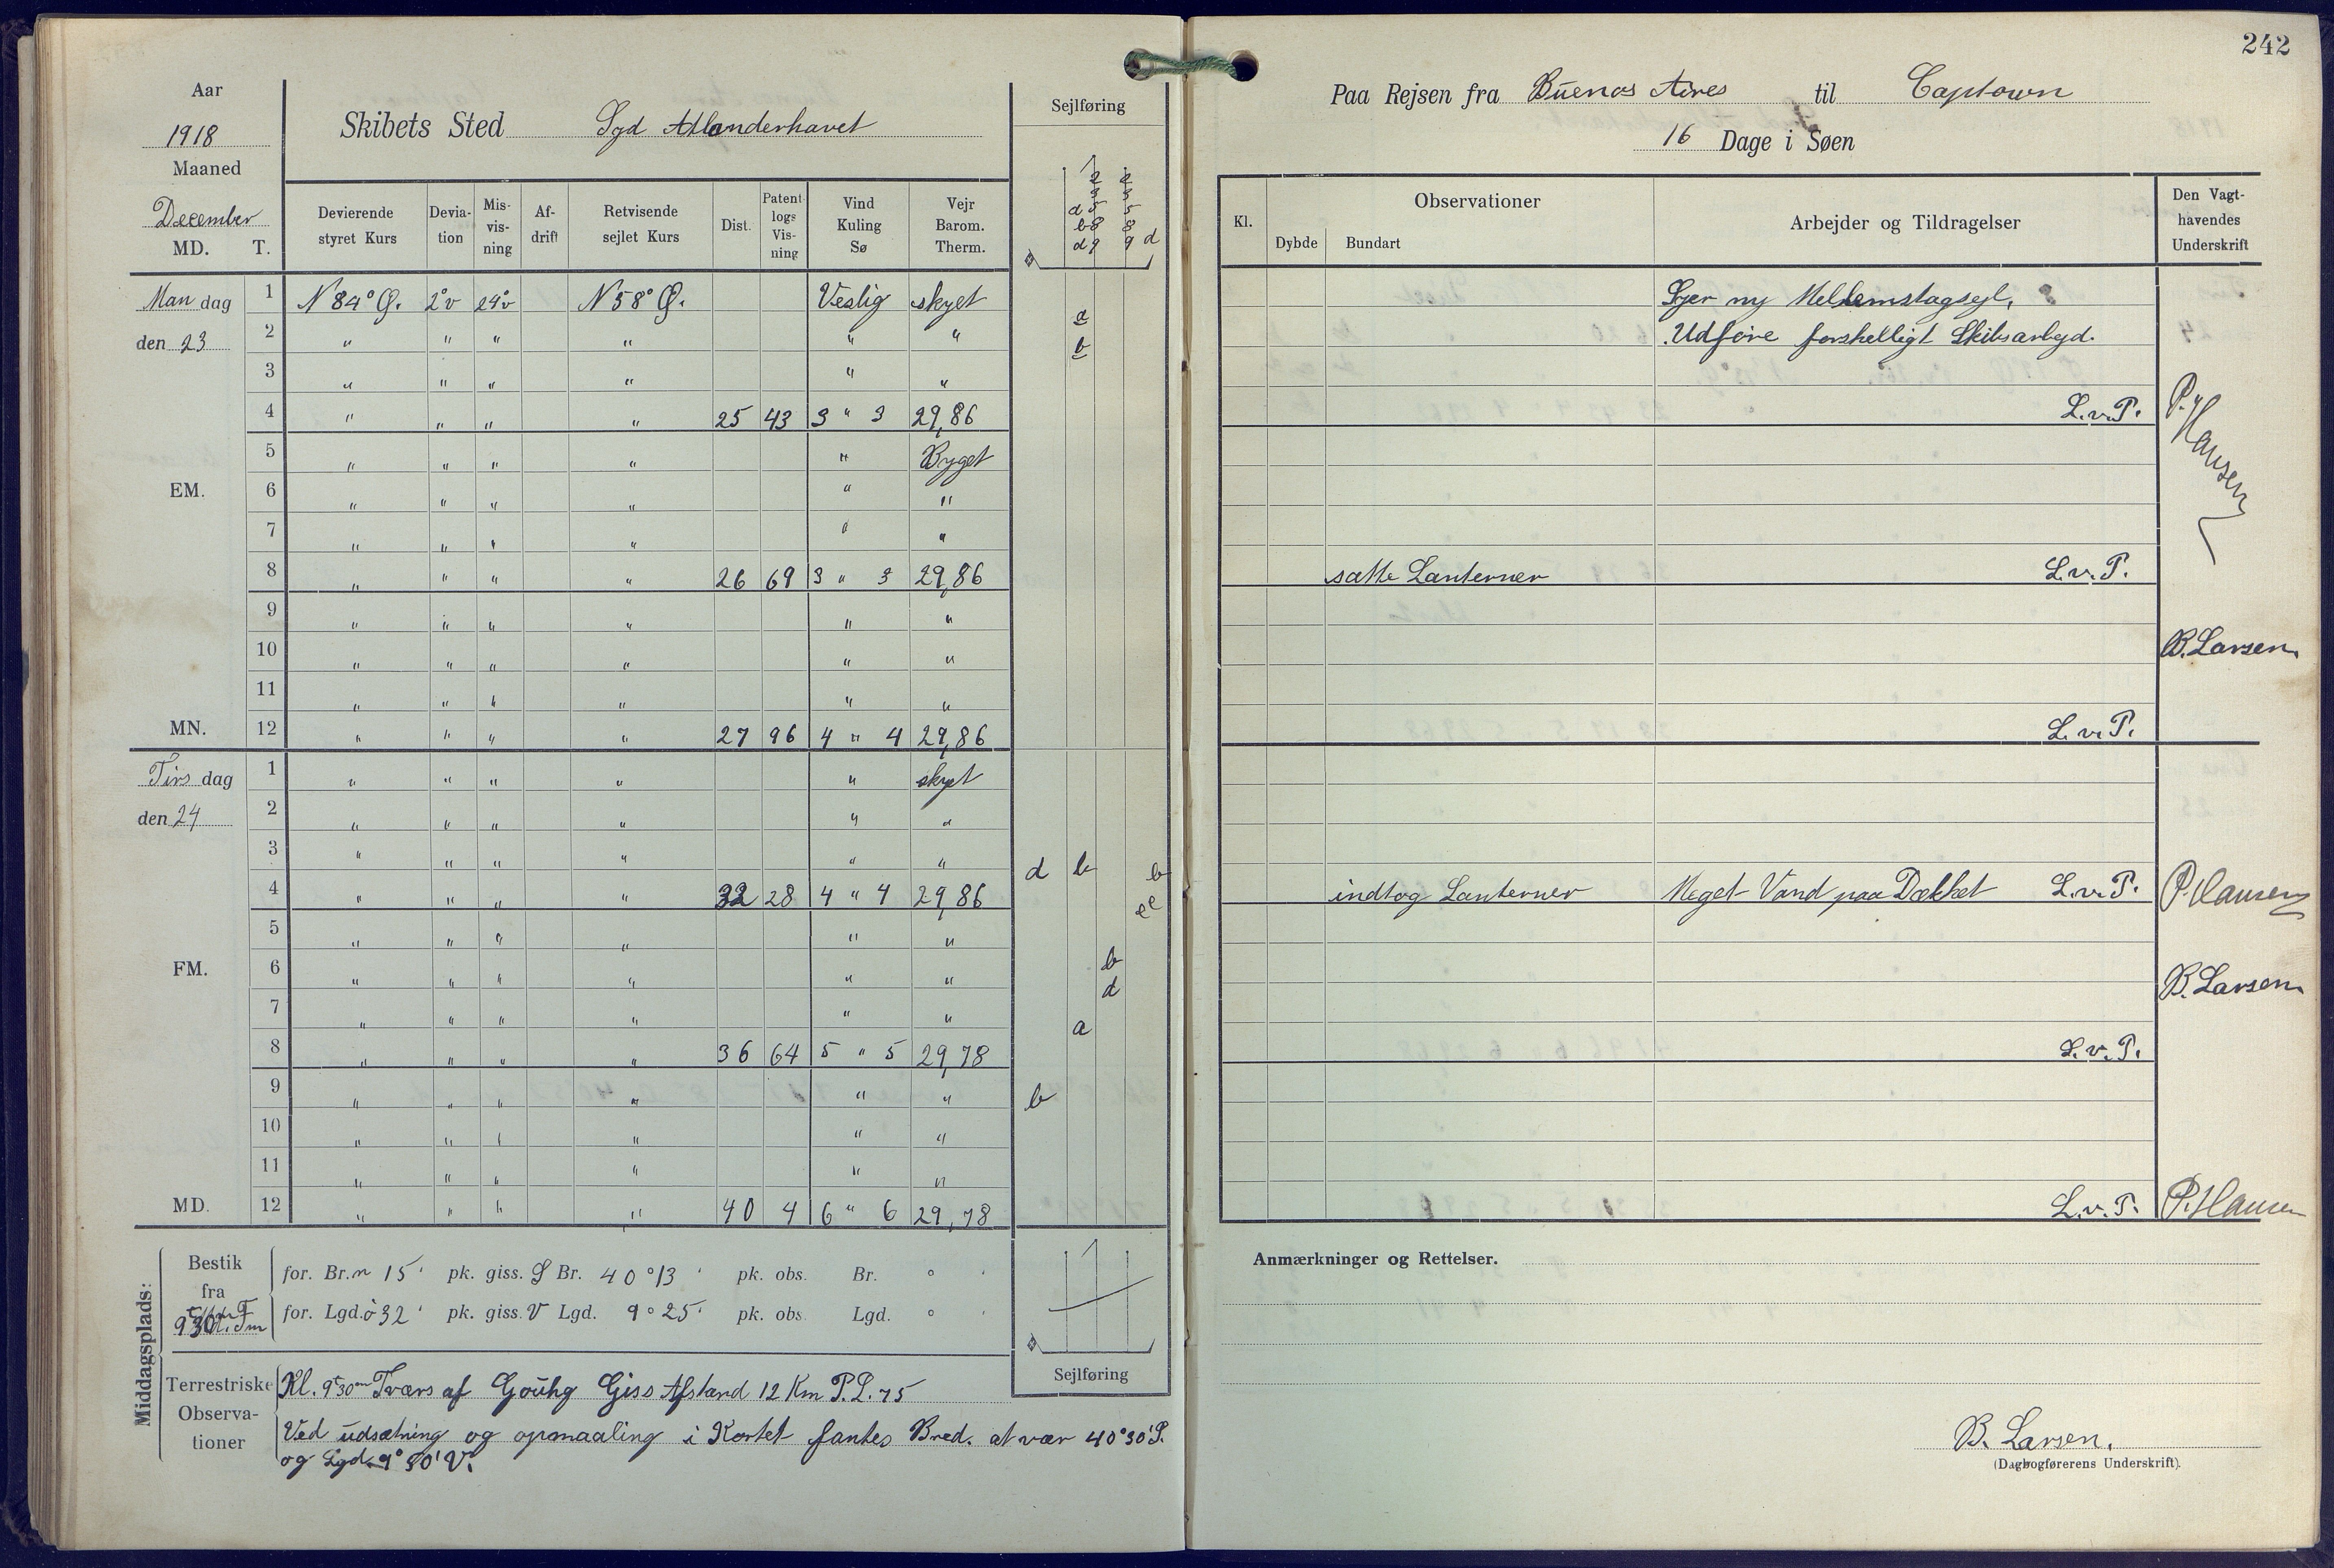 242
Aar
1918
Maaned
December
MD. T.
Skibets Sted Syd Atlanderhavet
Sejlføring
Paa Rejsen fra Buenos Aires til Captown
16 Dage i Søen
Devierende styret Kurs
Devia-tion
Mis-vis-ning
Af-drift
Retvisende sejlet Kurs
Dist.
Patent logs Vis-ning
Vind Kuling Sø
Vejr Barom. Therm.
Kl.
Observationer
Dybde Bundart
Arbejder og Tildragelser
Den Vagt-havendes Underskrift
Man dag 1 N 84° Ø. 2°v 24°v N 58° Ø. Veslig skyet Syer ny Mellemstagsejl,
den 23 2 " " " " " " Udføre forskelligt Skibsarbejd.
a
b
3 " " " " " "
4 " " " " 25 43 3 " 3 29,86 L.v.P. P. Hansen
5 " " " " " Byget
EM. 6 " " " " " "
7 " " " " " "
8 " " " " 26 69 3 " 3 29,86 satte Lanterner L.v.P.
9 " " " " " "
10 " " " " " " B. Larsen
11 " " " " " "
MN. 12 " " " " 27 96 4 " 4 29,86 L.v.P.
Tirs dag 1 " " " " " skyet
den 24 2 " " " " " "
3 " " " " " " d b b
4 " " " " 32 28 4 " 4 29,86 indtog Lanterner Meget Vand paa Dækket L.v.P. P. Hansen
5 " " " " " "
FM. 6 " " " " " " b B. Larsen
d
7 " " " " " " a
8 " " " " 36 64 5 " 5 29,78 L.v.P.
9 " " " " " " b
10 " " " " " "
11 " " " " " "
MD. 12 " " " " 40 4 6 " 6 29,78 L.v.P. P. Hansen
Middagsplads:
Bestik fra
for. Br. n 15' pk. giss. S Br. 40° 13' pk. obs. Br. ° '
for. Lgd. ö 32' pk. giss. V Lgd. 9° 25' pk. obs. Lgd. ° '
Sejlføring
Terrestriske Observa-tioner
Kl. 9t30m Tværs af Gouhg Giss Afstand 12 Km P.L. 75
Ved udsætning og opmaaling i Kortet fantes Bred. at vær 40°30'S.
og Lgd. 9° 50' V.
Anmærkninger og Rettelser.
B. Larsen.
(Dagbogførerens Underskrift).